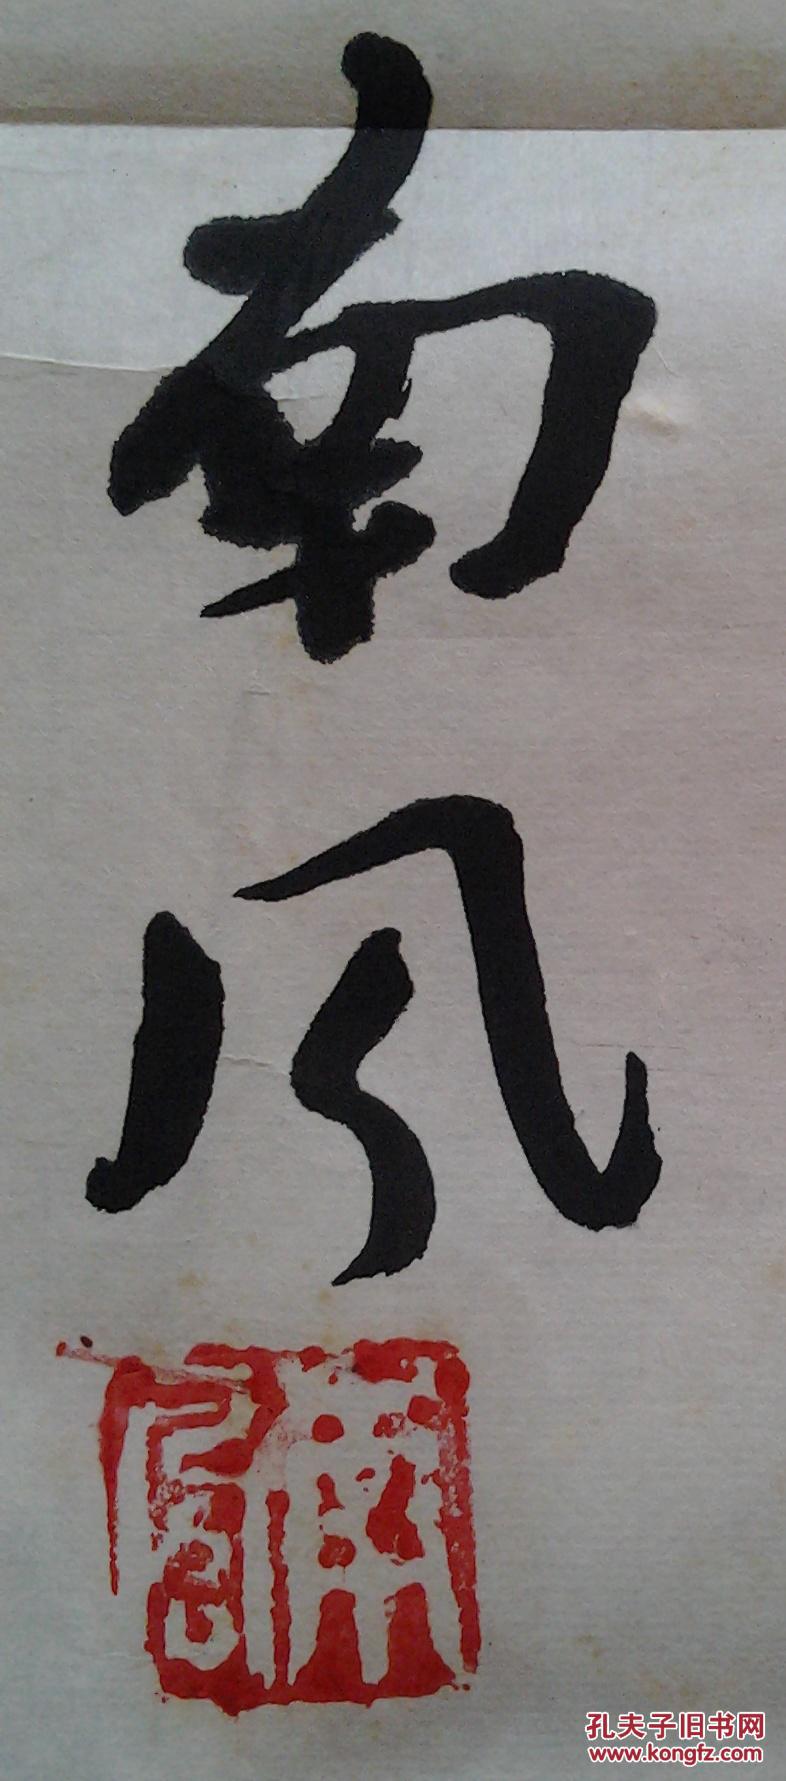 南风
孔夫子旧书网
www.kongfz.com